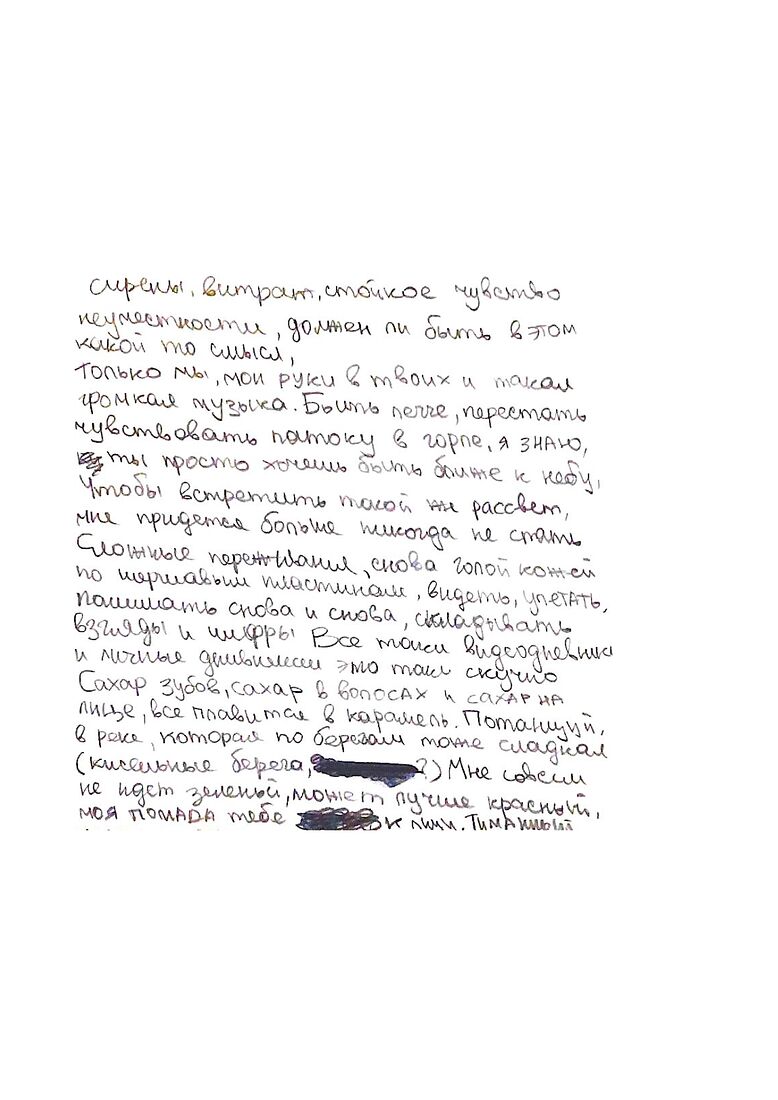 сирены, витраж, стойкое чувство
неуместности, должен ли быть в этом
какой то смысл,
только мы, мои руки в твоих и такая
громкая музыка. Быть легче, перестать
чувствовать патоку в горле, я знаю,
ты просто хочешь быть ближе к небу,
Чтобы встретить такой же рассвет,
мне придется больше никогда не спать
Сложные переживания, снова голой кожей
по шершавым пластинам, видеть, улетать,
понимать снова и снова, складывать
взгляды и цифры Все таки видеодневники
и личные это так скучно
Сахар зубов, сахар в волосах и сахар на
лице, все плавится в карамель. Потанцуй,
в реке, которая по берегам тоже сладкая
(кисельные берега, ?) Мне совсем
не идет зеленый, может лучше красный,
моя помада тебе к лицу. Туманный